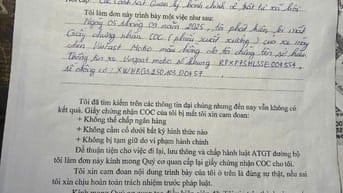 Các Cảnh sát Quản lý hành chính về trật tự xã hội
Tôi làm đơn này trình bày một việc như sau:
Ngày 05 tháng 09 năm 2025, tôi phát hiện bị mất
Giấy chứng nhận COC (phiếu xuất xưởng) của xe máy
điện VinFast Motio màu trắng do tôi đứng tên sở hữu
Thông tin xe Vinfast motio số khung
số động cơ:
Tôi đã tìm kiếm trên các thông tin đại chúng nhưng đến nay vẫn không có
kết quả. Giấy chứng nhận COC của bị mất tôi xin cam đoan:
+ Không thế chấp ngân hàng
+ Không cầm cố dưới bất kỳ hình thức nào
+ Không bị tạm giữ do vi phạm hành chính
Để thuận tiện cho việc đi lại, lưu thông và chấp hành luật ATGT đường bộ
tôi làm đơn này kính mong Quý cơ quan cấp lại giấy chứng nhận COC cho tôi.
Tôi xin cam đoan nội dung trình bày của tôi ở trên là đúng sự thật, nếu sai
tôi xin chịu hoàn toàn trách nhiệm trước pháp luật.